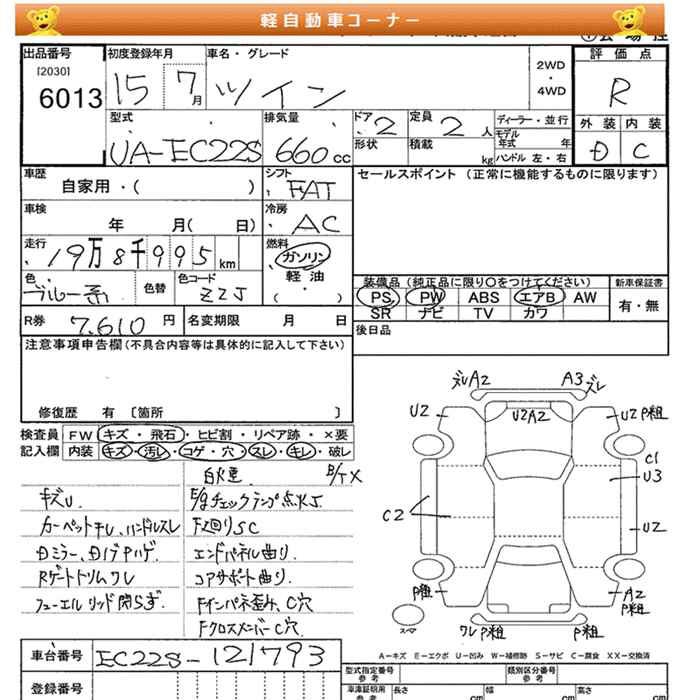 軽自動車コーナー
出品番号
[2030]
6013
初度登録年月
15 7月
車名・グレード
ツイン
2WD
・
4WD
評価点
R
型式
UA-EC22S
排気量
660cc
ドア 2
形状
定員 2人
積載 kg
ディーラー・並行
モデル
年式 年
ハンドル 左・右
外装 内装
D C
車歴
自家用・( )
シフト
FAT
セールスポイント (正常に機能するものに限ります)
車検
年 月( 日)
冷房
AC
走行
19万8千995km
燃料
ガソリン
軽油
( )
色
ブルー系
色替
色コード
ZZJ
装備品 (純正品に限り○をつけてください)
PS PW ABS エアB AW
SR ナビ TV カワ
新車保証書
有・無
R券 7,610円
名変期限 月 日
後日品
注意事項申告欄(不具合内容等は具体的に記入して下さい)
修復歴 有 〔箇所 〕
検査員
記入欄
FW キズ・飛石・ヒビ割・リペア跡・×要
内装 キズ・汚レ・コゲ・穴・スレ・キレ・破レ
キズU
カーペット干レ、ハンドルスレ
Dミラー、DドアPハゲ
Rゲートトリムワレ
フューエルリッド閉らず
E/gチェックランプ点火J
F廻りSC
エンドパネル曲り
コアサポート曲り
Fインパネ歪み、C穴
FクロスメンバーC穴
ズレA2 A3ズレ
U2 U2A2 U2P粗
C1
U3
C2 U2
P粗 A2
P粗
スペア
ワレP粗 P粗
A-キズ E-エクボ U-凹み W-補修跡 S-サビ C-腐食 XX-交換済
車台番号 EC22S-121793
登録番号
型式指定番号
参考
類別区分番号
参考
車庫証明用
参考
長さ cm
幅 cm
高さ cm